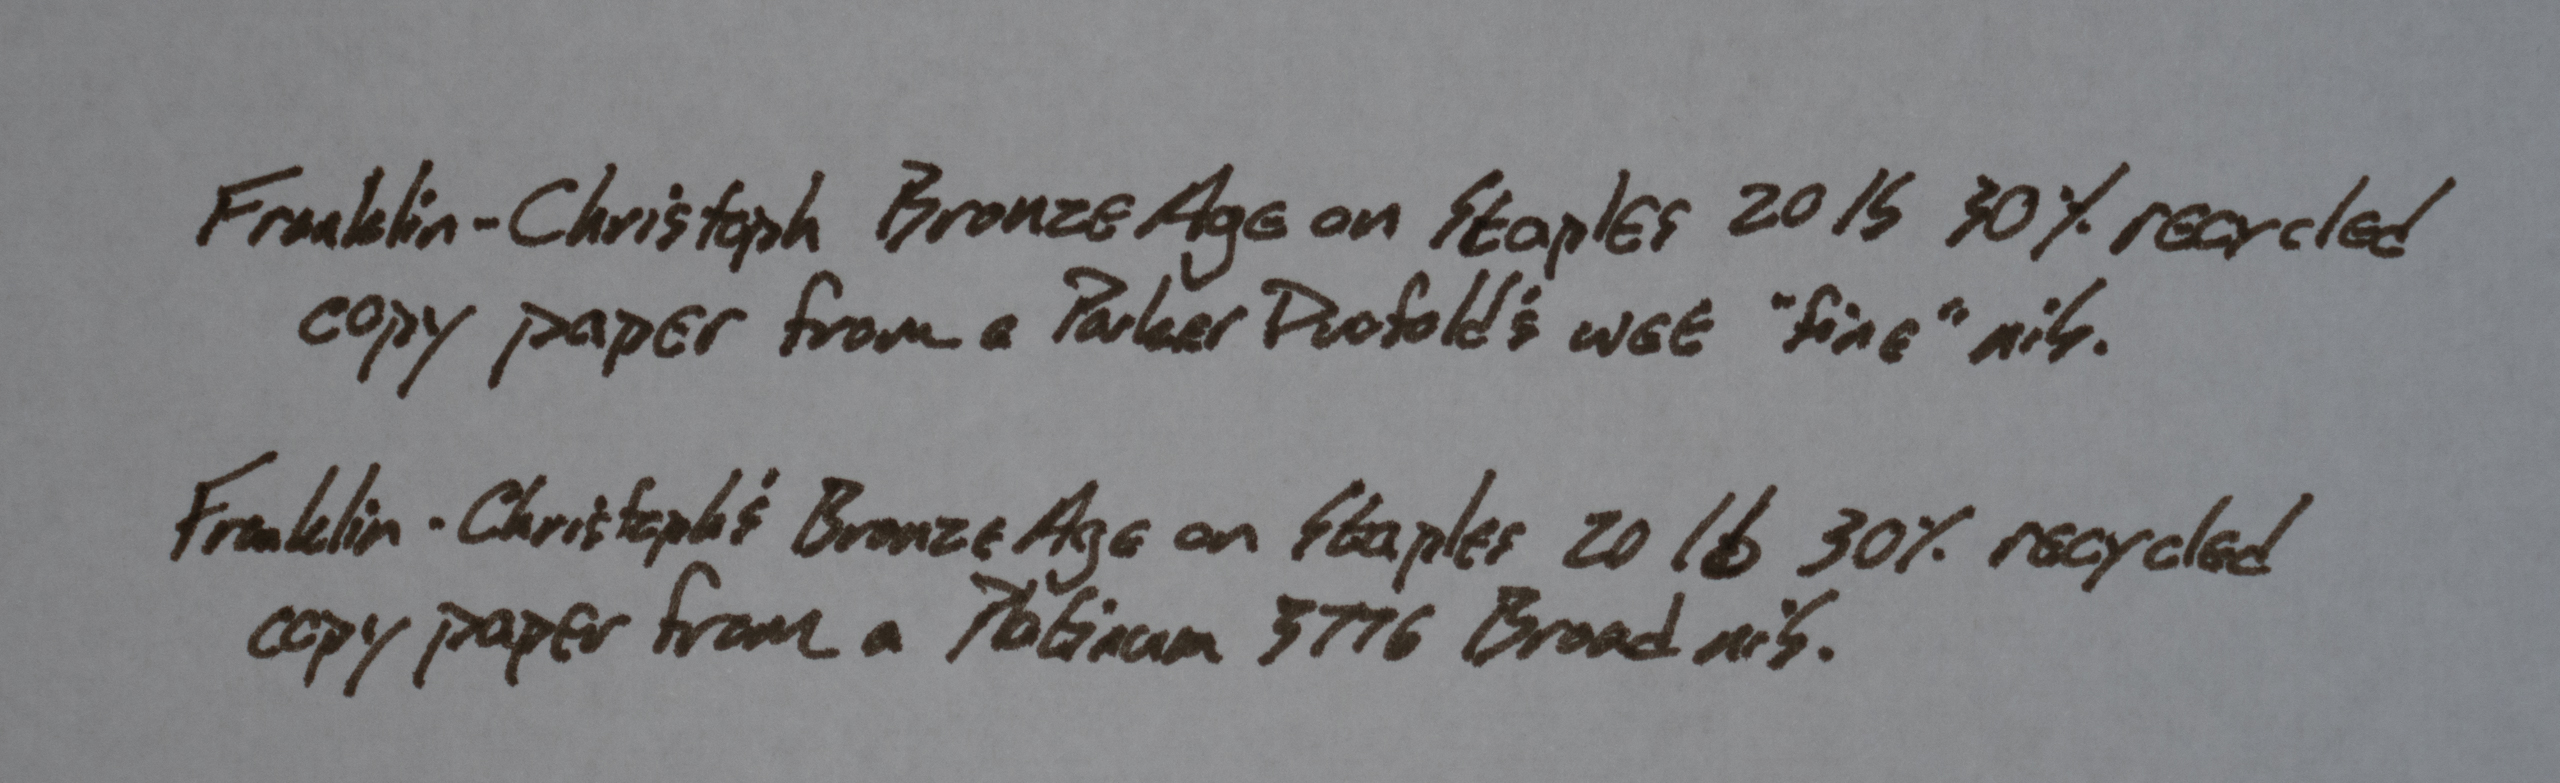 Franklin-Christoph Bronze Age on Staples 20 lb 30% recycled
copy paper from a Parker Duofold's wee "fine" nib.
Franklin-Christoph's Bronze Age on Staples 20 lb 30% recycled
copy paper from a Platinum 3776 Broad nib.